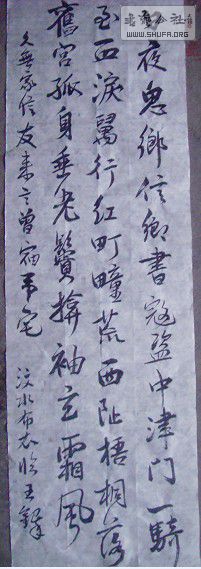 WWW.SHUFA.ORG
夜思鄉信鄉書寇盜中津門一騎
至血淚萬行紅町疃荒西阯梧桐落
舊宮孤身垂老鬢揜袖立霜風
久無家信友來言曾宿宅 汶水布衣臨王鐸